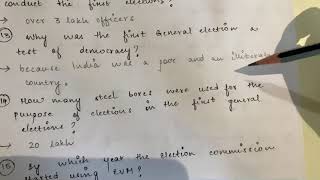 conduct the first elections?
→ over 3 lakh officers
(13) Why was the first General election a
test of democracy?
→ because India was a poor and an illiterate
country.
(14) How many steel boxes were used for the
purpose of elections in the first general
elections?
→ 20 lakh
(15) By which year the election commission
started using EVM?